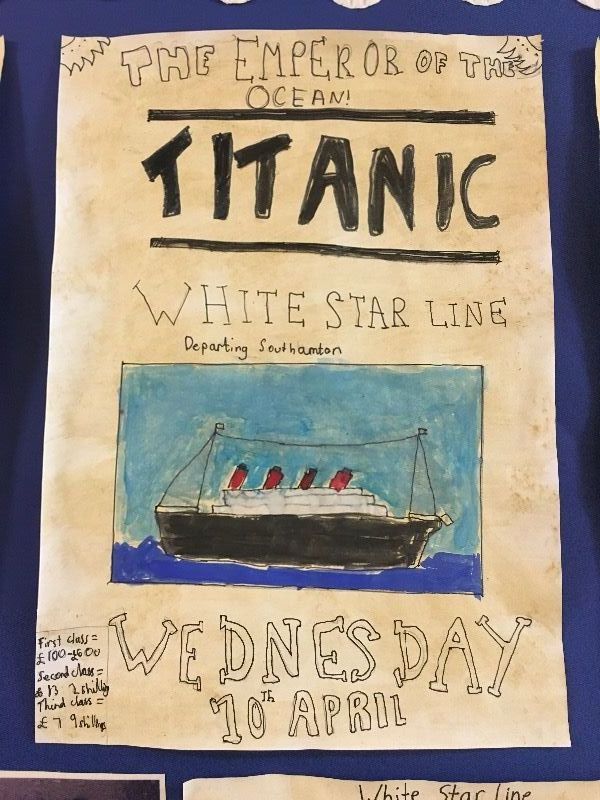 THE EMPEROR OF THE
OCEAN!
TITANIC
WHITE STAR LINE
Departing Southamton
WEDNESDAY
10th APRIL
First class =
£100-£600
Second class =
£13 2 shillings
Third class =
£7 9 shillings
White Star Line